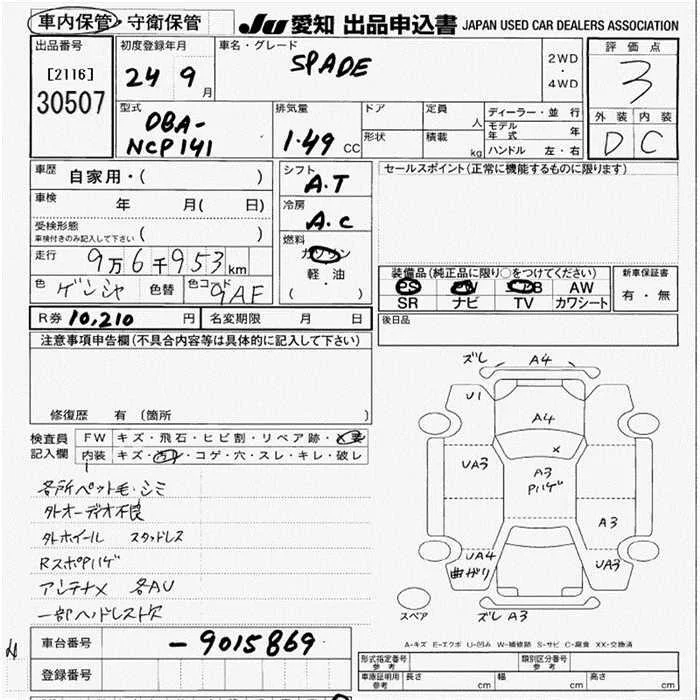 車内保管・守衛保管 JU 愛知 出品申込書 JAPAN USED CAR DEALERS ASSOCIATION
出品番号 初度登録年月 車名・グレード 2WD・4WD 評価点
[2116] 24 9月 SPADE 3
30507
型式 排気量 ドア 定員 人 ディーラー・並行 外装 内装
DBA-NCP141 1.49 CC 形状 積載 kg モデル年式 年 D C
ハンドル 左・右
車歴 自家用・( ) シフト A.T セールスポイント(正常に機能するものに限ります)
車検 年 月( 日) 冷房 A.C
受検形態 車検付きのみ記入して下さい ( )
燃料 ガソリン 軽・油 ( )
走行 9万6千953km
装備品(純正品に限り○をつけてください) 新車保証書
PS PW エアB AW 有・無
SR ナビ TV カワシート
色 ゲンシャ 色替 色コード 9AF
R券 10,210 円 名変期限 月 日 後日品
注意事項申告欄(不具合内容等は具体的に記入して下さい)
修復歴 有 (箇所 )
検査員記入欄 FW キズ・飛石・ヒビ割・リペア跡・×要
内装 キズ・汚レ・コゲ・穴・スレ・キレ・破レ
各所ペット毛・シミ
外オーディオ不良
外ホイール スタッドレス
RスポPハゲ
アンテナ× 各AU
一部ヘッドレスト欠
ズレ A4
U1
A4
×
UA3
A3
Pハゲ
A3
UA4
曲がり
UA3
スペア
ズレ A3
A-キズ E-エクボ U-凹み W-補修跡 S-サビ C-腐食 XX-交換済
車台番号 -9015869
登録番号
形式指定番号 参考 類別区分番号 参考
車庫証明用 参考 長さ cm 幅 cm 高さ cm